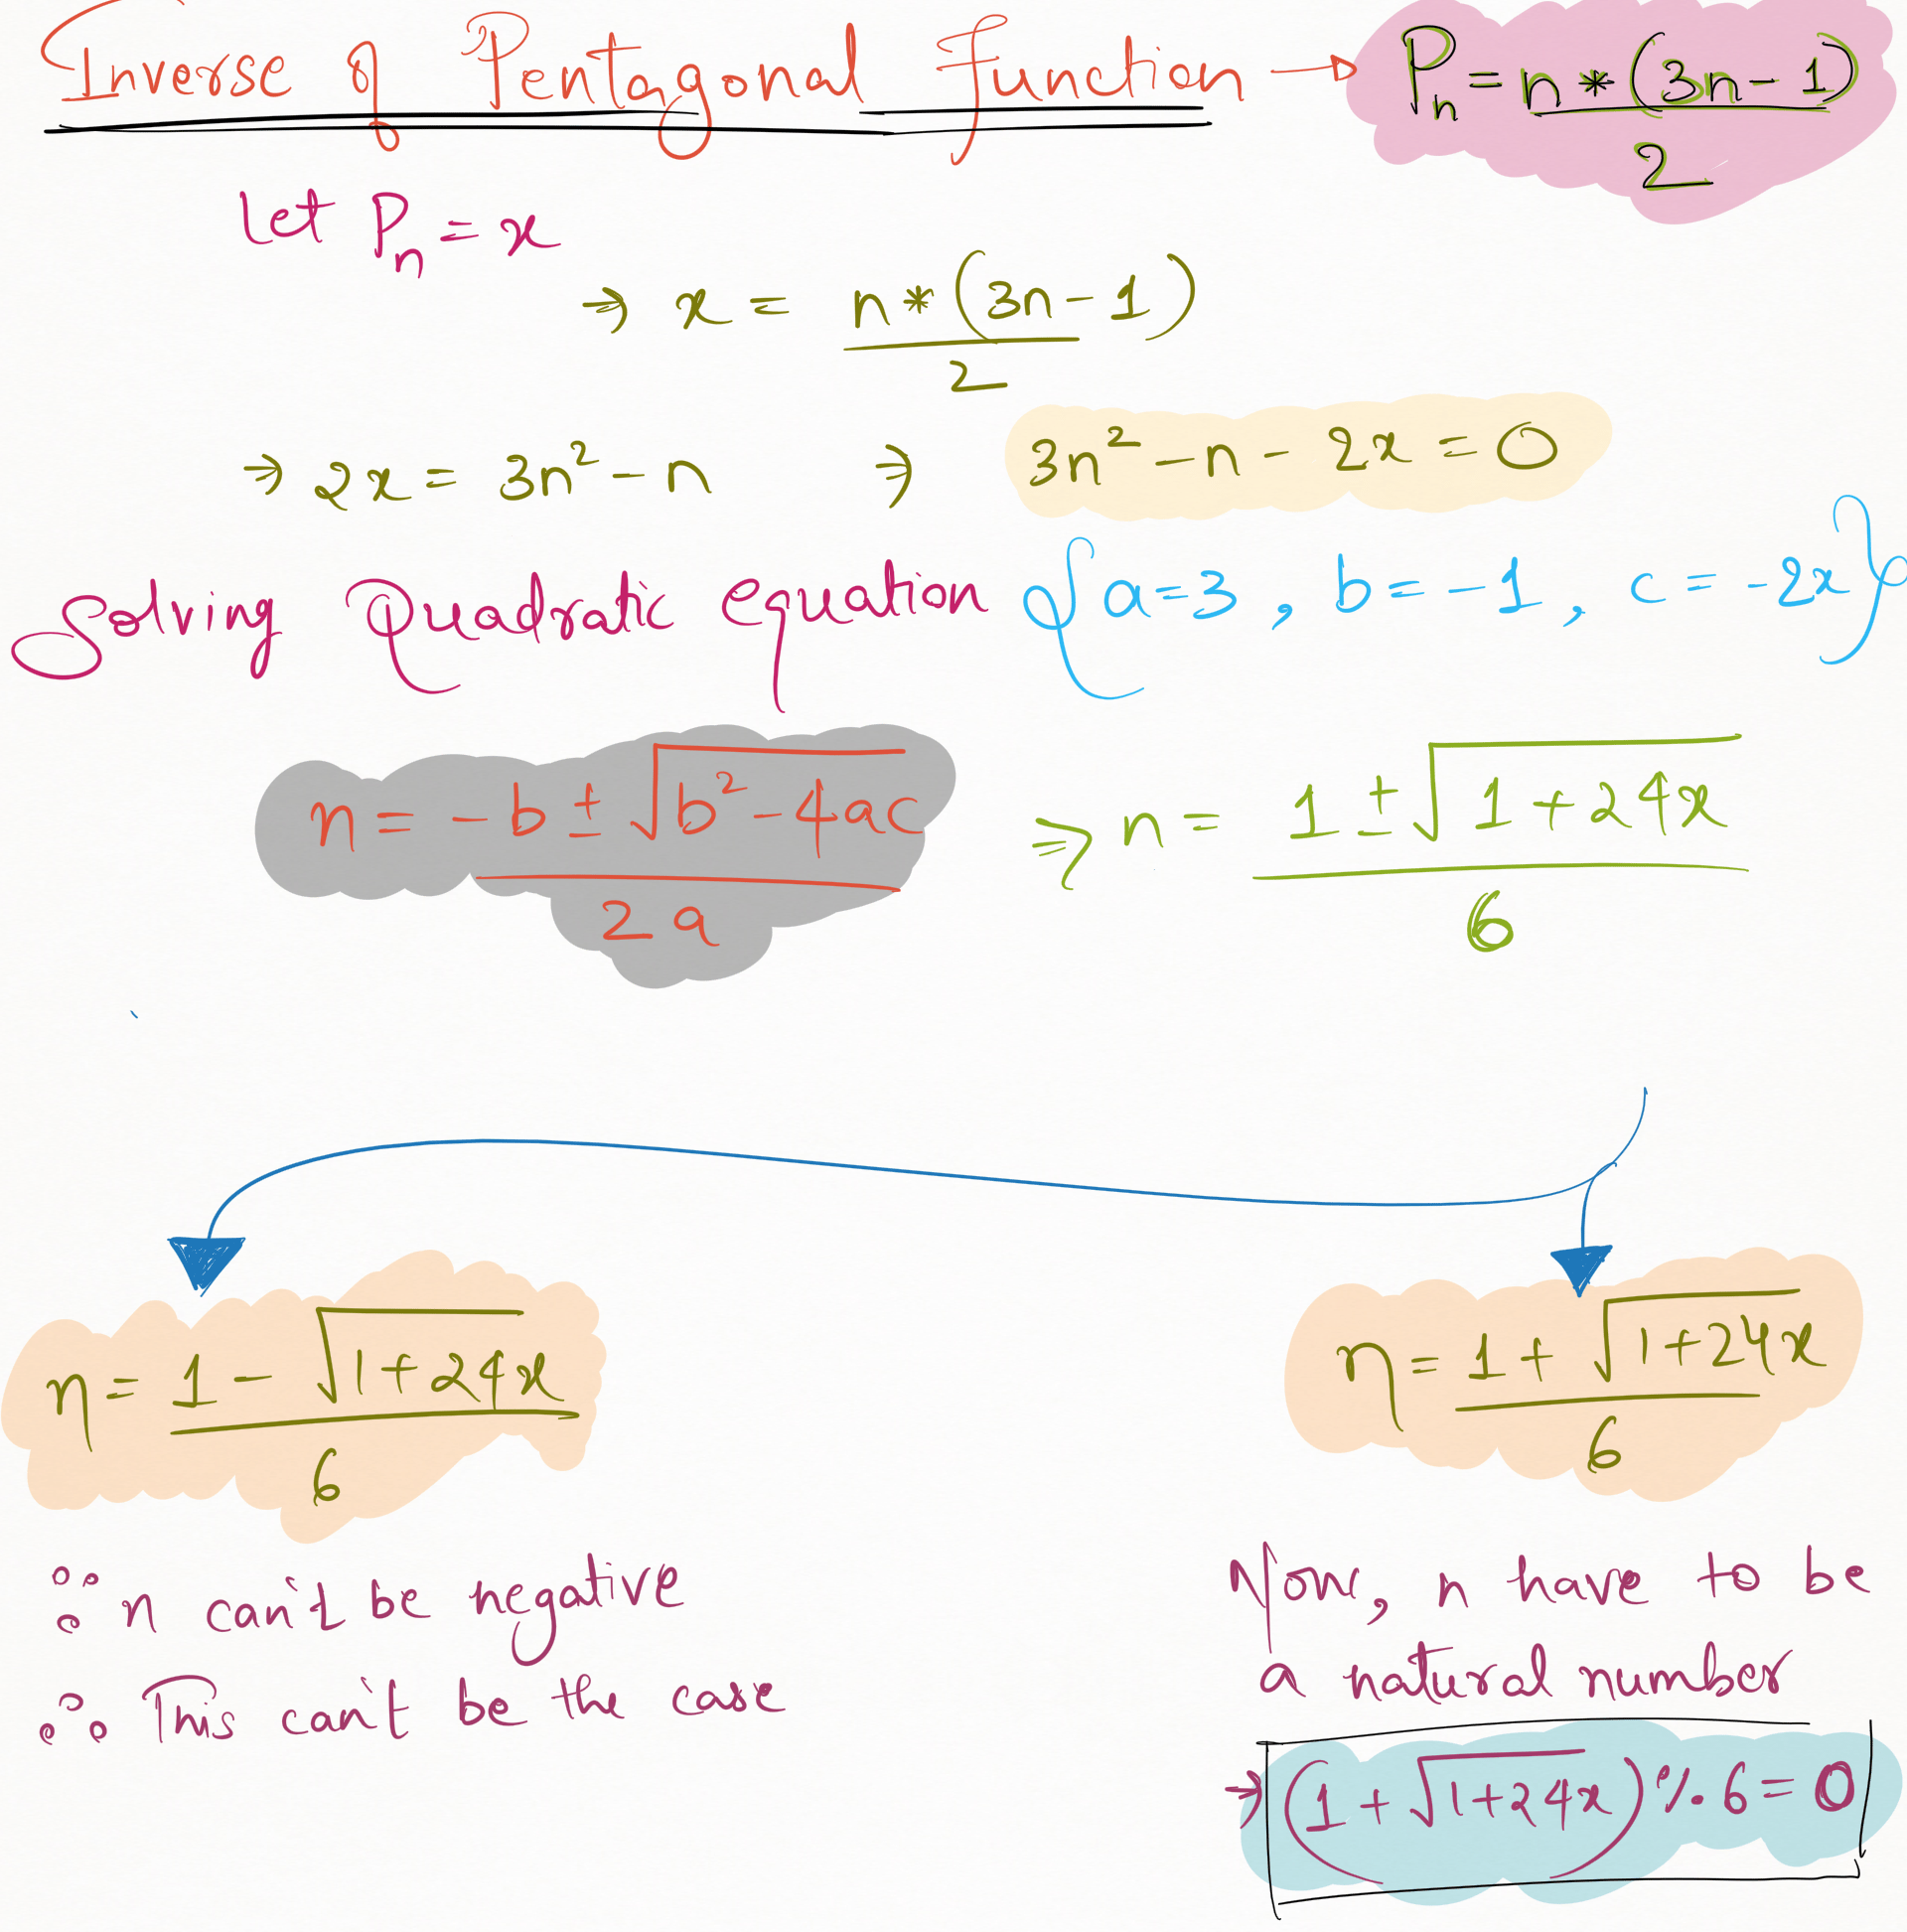 Inverse of Pentagonal Function → Pₙ = n * (3n - 1) / 2
Let Pₙ = x
⇒ x = n * (3n - 1) / 2
⇒ 2x = 3n² - n ⇒ 3n² - n - 2x = 0
Solving Quadratic equation { a = 3 , b = -1 , c = -2x }
n = -b ± √(b² - 4ac) / 2a ⇒ n = 1 ± √(1 + 24x) / 6
n = 1 - √(1 + 24x) / 6 n = 1 + √(1 + 24x) / 6
∵ n can't be negative
∴ This can't be the case
Now, n have to be
a natural number
⇒ (1 + √(1 + 24x)) % 6 = 0